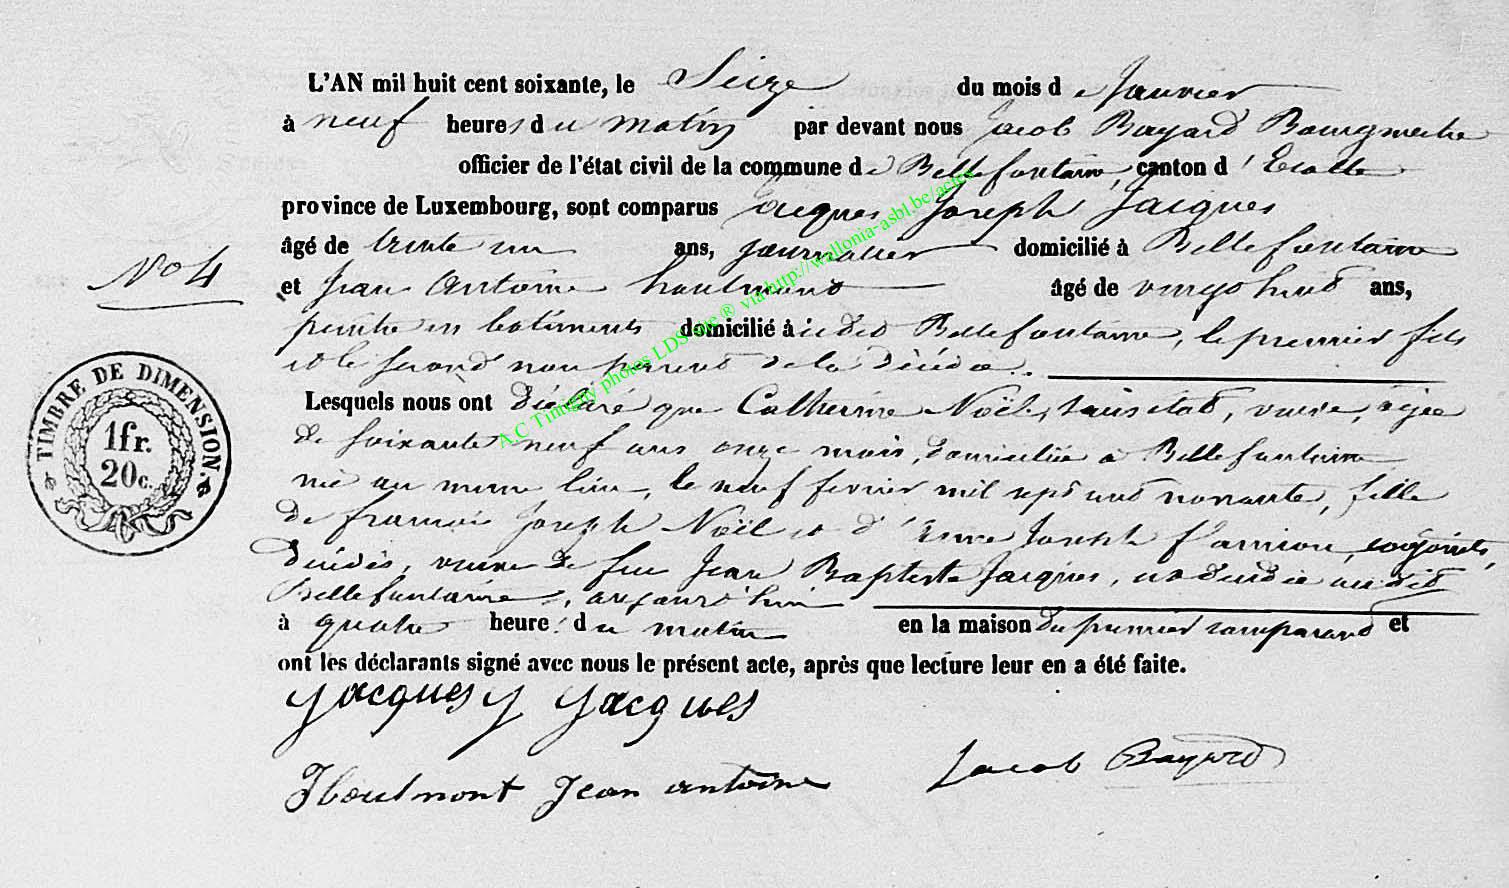 L'AN mil huit cent soixante, le Seize du mois de Janvier
à neuf heures du matin par devant nous Jacob Bayard Bourgmestre
officier de l'état civil de la commune de Bellefontaine, canton d'Etalle
province de Luxembourg, sont comparus Jacques Joseph Jacques
âgé de trente un ans, journalier domicilié à Bellefontaine
N° 4
et Jean Antoine houlmont âgé de vingt huit ans,
peintre en batiments domicilié à Bellefontaine, le premier fils
et le second non parent de la décédée.
Lesquels nous ont déclaré que Catherine Noël, sans état, veuve, agée
de soixante neuf ans onze mois, domiciliée à Bellefontaine
née au meme lieu, le neuf fevrier mil sept cent nonante, fille
de francois Joseph Noël et d'Anne Joseph conjoints,
décédés, veuve de feu Jean Baptiste Jacques, est décédée au dit
Bellefontaine, aujourd'hui
à quatre heures du matin en la maison du premier comparant et
ont les déclarants signé avec nous le présent acte, après que lecture leur en a été faite.
Jacques J Jacques
Houlmont Jean antoine
Jacob Bayard
TIMBRE DE DIMENSION.
1fr.
20c.
A.C Tintigny photos LDS site ® via http://wallonia-asbl.be/actes